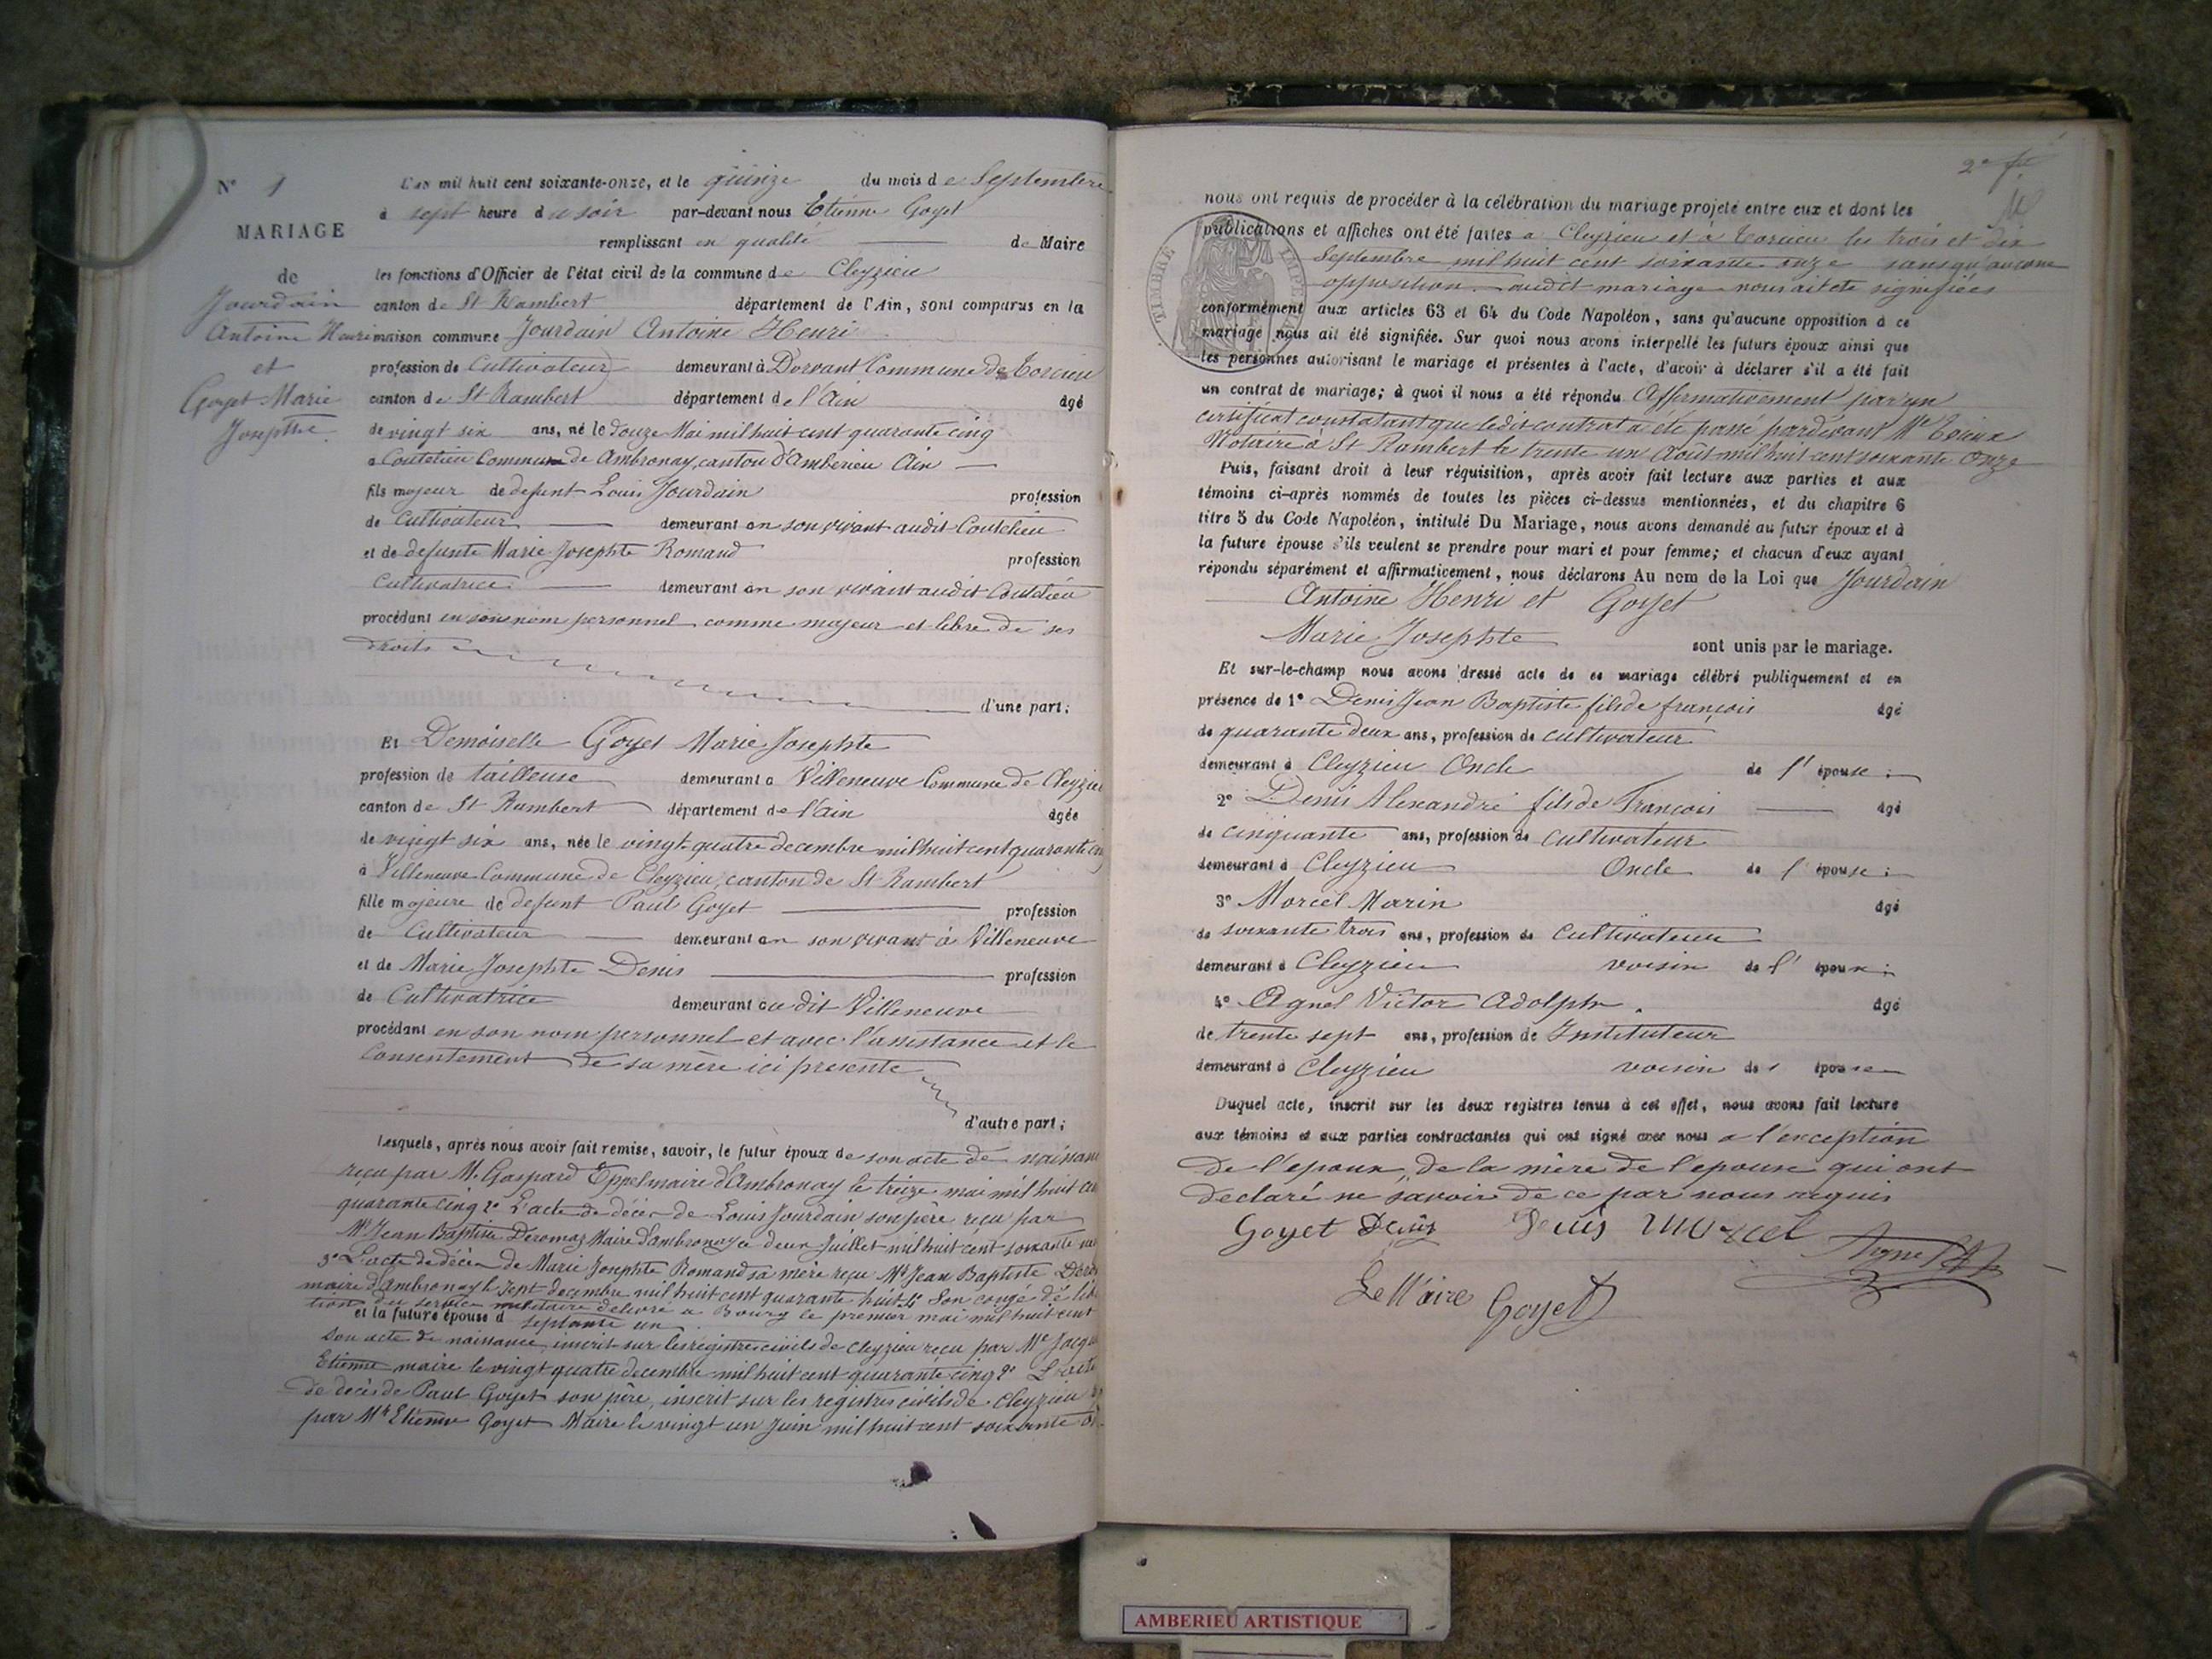 N° 1
MARIAGE
de
Jourdain
Antoine Henri
et
Goyet Marie
Josephte
L'an mil huit cent soixante-onze, et le quinze du mois de Septembre
à sept heure du soir par-devant nous Etienne Goyet
remplissant en qualité de Maire
les fonctions d'Officier de l'état civil de la commune de Cleyzieu
canton de St Rambert département de l'Ain, sont comparus en la
maison commune Jourdain Antoine Henri
profession de Cultivateur demeurant à Dorvant Commune de Torcieu
canton de St Rambert département de l'Ain âgé
de vingt six ans, né le Douze Mai mil huit cent quarante cinq
à Coutelieu Commune de Ambronay, canton d'Amberieu Ain
fils majeur de defunt Louis Jourdain profession
de Cultivateur demeurant en son vivant audit Coutelieu
et de defunte Marie Josephte Romand profession
Cultivatrice demeurant en son vivant audit Coutelieu
procédant en son nom personnel comme majeur et libre de ses
droits
d'une part;
Et Demoiselle Goyet Marie Josephte
profession de tailleuse demeurant a Villeneuve Commune de Cleyzieu
canton de St Rambert département de l'Ain âgée
de vingt six ans, née le vingt quatre decembre mil huit cent quarante cinq
à Villeneuve Commune de Cleyzieu, canton de St Rambert
fille majeure de defunt Paul Goyet profession
de Cultivateur demeurant en son vivant à Villeneuve
et de Marie Josephte Denis profession
de Cultivatrice demeurant au dit Villeneuve
procédant en son nom personnel et avec l'assistance et le
Consentement de sa mère ici presente
d'autre part;
Lesquels, après nous avoir fait remise, savoir, le futur époux de son acte de naissan
reçu par M. Gaspard Eppel maire d'Ambronay le treize mai mil huit cen
quarante cinq 2° L'acte de décès de Louis Jourdain son père reçu par
Mr Jean Baptiste Deromas Maire d'ambronay le deux Juillet mil huit cent soixante
3° L'acte de décès de Marie Josephte Romand sa mère reçu Mr Jean Baptiste
maire d'Ambronay le sept decembre mil huit cent quarante huit 4° Son congé de libé
tion du service militaire delivré a Bourg le premier mai mil huit cent
et la future épouse d septante un
son acte de naissance, inscrit sur les registres civils de Cleyzieu reçu par Me Jacqu
Etienne maire le vingt quatre decembre mil huit cent quarante cinq 2° L'acte
de decès de Paul Goyet son père, inscrit sur les registres civils de Cleyzieu
par Mr Etienne Goyet Maire le vingt un Juin mil huit cent soixante
2e
nous ont requis de procéder à la célébration du mariage projeté entre eux et dont les
publications et affiches ont été faites a Cleyzieu et à Torcieu les trois et dix
Septembre mil huit cent soixante onze sans qu'aucune
opposition audit mariage nous ait ete signifiées
conformément aux articles 63 et 64 du Code Napoléon, sans qu'aucune opposition à ce
mariage nous ait été signifiée. Sur quoi nous avons interpellé les futurs époux ainsi que
les personnes autorisant le mariage et présentes à l'acte, d'avoir à déclarer s'il a été fait
un contrat de mariage; à quoi il nous a été répondu Affirmativement par un
certificat constatant que ledit contrat a été passé pardevant Me
Notaire à St Rambert le trente un Août mil huit cent soixante Onze
Puis, faisant droit à leur réquisition, après avoir fait lecture aux parties et aux
témoins ci-après nommés de toutes les pièces ci-dessus mentionnées, et du chapitre 6
titre 5 du Code Napoléon, intitulé Du Mariage, nous avons demandé au futur époux et à
la future épouse s'ils veulent se prendre pour mari et pour femme; et chacun d'eux ayant
répondu séparément et affirmativement, nous déclarons Au nom de la Loi que Jourdain
Antoine Henri et Goyet
Marie Josephte sont unis par le mariage.
Et sur-le-champ nous avons dressé acte de ce mariage célébré publiquement et en
présence de 1° Denis Jean Baptiste fils de françois âgé
de quarante deux ans, profession de cultivateur
demeurant à Cleyzieu Oncle de l'épouse;
2° Denis Alexandre fils de François âgé
de cinquante ans, profession de cultivateur
demeurant à Cleyzieu Oncle de l'épouse;
3° Morcel Marin âgé
de soixante trois ans, profession de Cultivateur
demeurant à Cleyzieu voisin de l'époux;
4° Agnel Victor Adolphe âgé
de trente sept ans, profession de Instituteur
demeurant à Cleyzieu voisin de l épouse
Duquel acte, inscrit sur les deux registres tenus à cet effet, nous avons fait lecture
aux témoins et aux parties contractantes qui ont signé avec nous a l'exception
de l'epoux, de la mère de l'epouse qui ont
declaré ne savoir de ce par nous requis
Goyet Denis Denis morcel Agnel
Le Maire Goyet
TIMBRE IMPE
AMBERIEU ARTISTIQUE